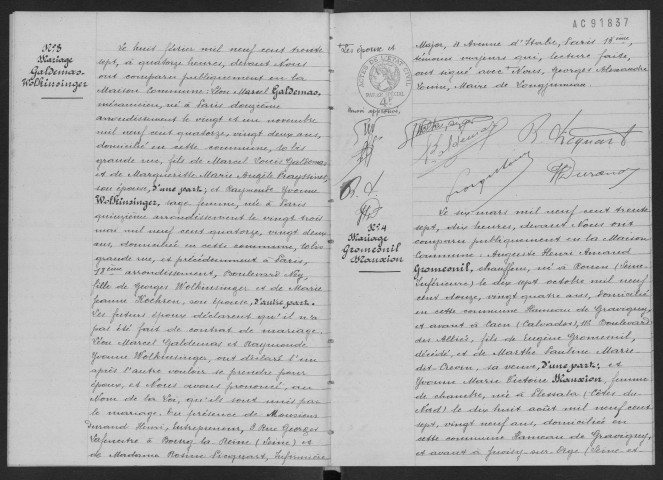 N°3
Mariage
Galdemas
Wolkinsinger
Le huit février mil neuf cent trente
sept, à quatorze heures, devant Nous
ont comparu publiquement en la
Maison Commune: Léon Marcel Galdemas,
mécanicien, né à Paris douzième
arrondissement le vingt et un novembre
mil neuf cent quatorze, vingt deux ans,
domicilié en cette commune, 10 bis
grande rue, fils de Marcel Louis Galdemas
et de Marguerite Marie Angèle
son épouse, d'une part; et Raymonde Yvonne
Wolkinsinger, sage femme, née à Paris
quinzième arrondissement le vingt trois
mai mil neuf cent quatorze, vingt deux
ans, domiciliée en cette commune, 10 bis
grande rue, et précédemment à Paris,
18ème arrondissement, Boulevard Ney,
fille de Georges Wolkinsinger et de Marie
Jeanne, son épouse, d'autre part.
Les futurs époux déclarent qu'il n'a
pas été fait de contrat de mariage.
Léon Marcel Galdemas et Raymonde
Yvonne Wolkinsinger, ont déclaré l'un
après l'autre vouloir se prendre pour
époux, et Nous avons prononcé, au
Nom de la Loi, qu'ils sont unis par
le mariage. En présence de Monsieur
Durand Henri, Entrepreneur, 8 Rue Georges
Lafenestre à Bourg la Reine (Seine) et
de Madame Rosine Picquart, Infirmière
AC 91837
Les époux et
Major, 11 Avenue d'Italie, Paris 13ème,
témoins majeurs que, lecture faite,
ont signé avec Nous, Georges Alexandre
, Maire de Longjumeau.
N°4
Mariage
Gromesnil
Mauxion
Le six mars mil neuf cent trente
sept, dix heures, devant Nous ont
comparu publiquement en la Maison
Commune: Auguste Henri Amand
Gromesnil, chauffeur, né à Rouen (Seine
Inférieure) le dix sept octobre mil neuf
cent douze, vingt quatre ans, domicilié
en cette commune Hameau de Gravigny,
et avant à Caen (Calvados), Boulevard
des Alliés, fils de Eugène Gromesnil,
décédé, et de Marthe Pauline Marie
, sa veuve, d'une part; et
Yvonne Marie Victoire Mauxion, femme
de chambre, née à Plessala (Côtes du
Nord) le dix huit août mil neuf cent
sept, vingt neuf ans, domiciliée en
cette commune Hameau de Gravigny,
et avant à Juvisy-sur-Orge (Seine et